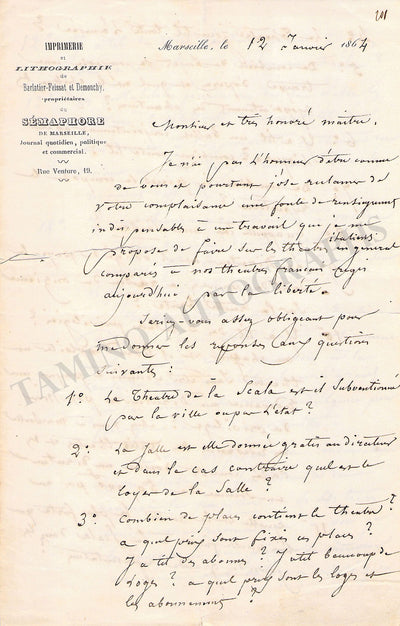 201
IMPRIMERIE
ET
LITHOGRAPHIE
de
Barlatier-Feissat et Demonchy,
propriétaires
du
SÉMAPHORE
DE MARSEILLE,
Journal quotidien, politique
et commercial.
Rue Venture, 19.
Marseille, le 12 Janvier 1864
Monsieur et très honoré maître,
Je n'ai pas l'honneur d'être connu
de vous et pourtant j'ose réclamer de
votre complaisance une foule de renseignements
indispensables à un travail que je me
propose de faire sur les théatres italiens en général
comparés à nos théatres français régis
aujourd'hui par la liberté.
Seriez-vous assez obligeant pour
me donner les réponses aux questions
suivantes :
1o. Le Théatre de la Scala est il subventionné
par la ville ou par l'état ?
2o. La Salle est elle donnée gratis au directeur
et dans le cas contraire quel est le
loyer de la Salle ?
3o. Combien de places contient le théatre ?
a quel prix sont fixés ces places ?
Y a til des abonnés ? Y a til beaucoup de
loges ? a quel prix sont les loges et
les abonnements ?
TAMINO AUTOGRAPHS